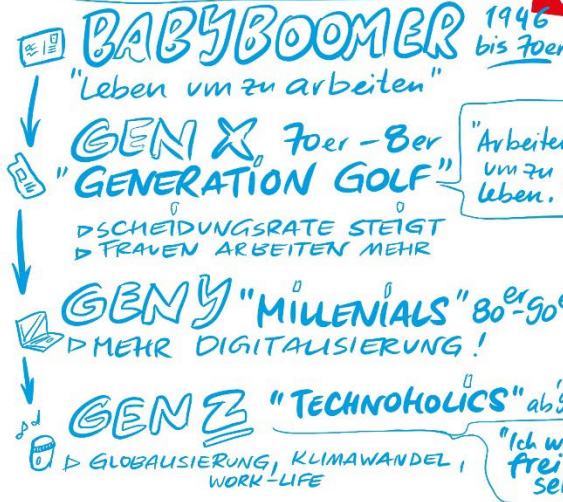 BABYBOOMER 1946
bis 70er
"Leben um zu arbeiten"
GEN X, 70er - 8er
"GENERATION GOLF"
"Arbeiten
um zu
leben.
SCHEIDUNGSRATE STEIGT
FRAUEN ARBEITEN MEHR
GEN Y "MILLENIALS" 80er-90er
MEHR DIGITALISIERUNG!
GEN Z "TECHNOHOLICS" ab
"Ich
frei
GLOBALISIERUNG, KLIMAWANDEL,
WORK-LIFE